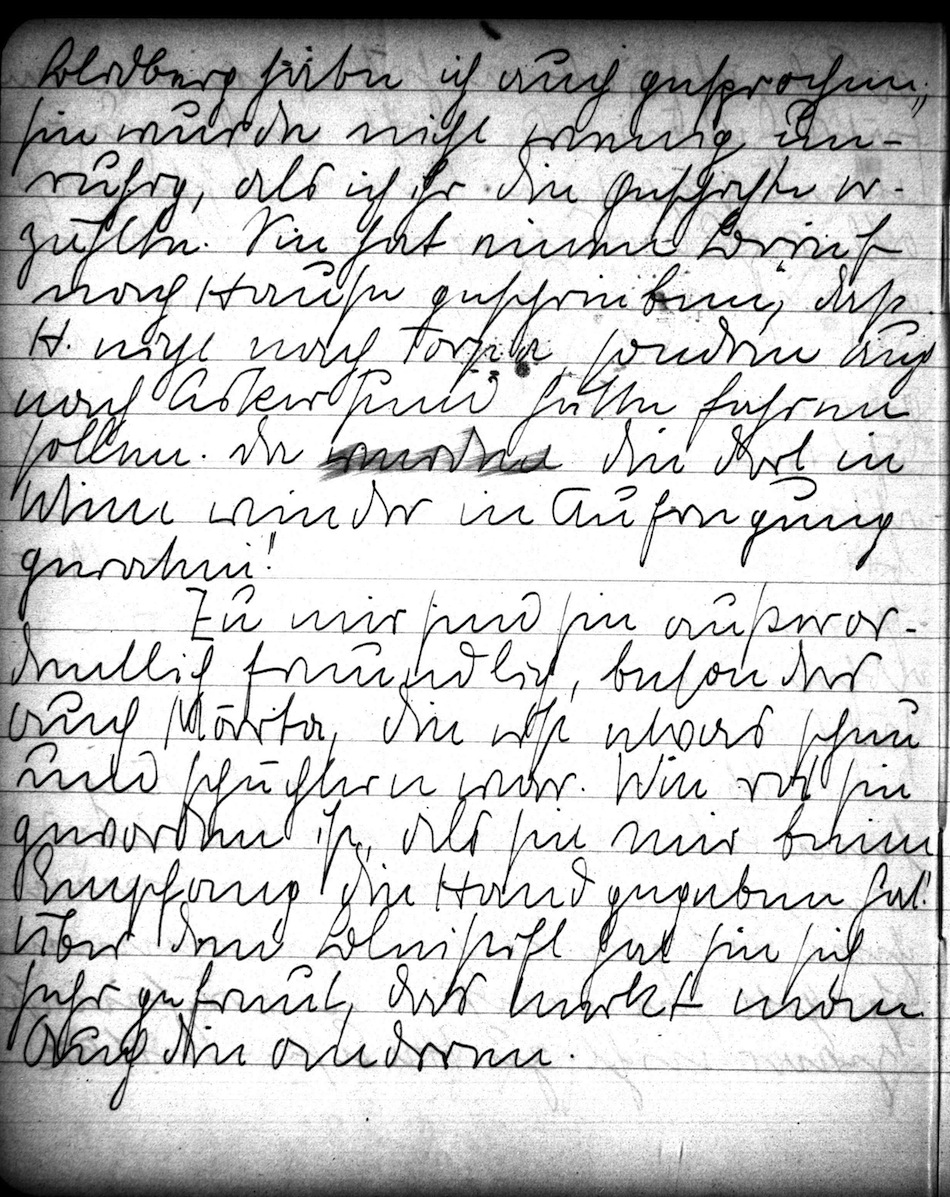 Goldberg habe ich auch gesprochen,
sie wurde nicht wenig un-
ruhig, als ich ihr die Geschichte er-
zählte. Sie hat einen Brief
nach Hause geschrieben, daß
H. nicht nach Torpa, sondern auch
nach Askersund hätte fahren
sollen. Da die dort in
Wien wieder in Aufregung
geraten!
Zu mir sind sie außeror-
dentlich freundlich, besonders
auch Märta, die erst etwas scheu
und schüchtern war. Wie rot sie
geworden ist, als sie mir beim
Empfang die Hand gegeben hat!
Über den Bleistift hat sie sich
sehr gefreut, das merkt man.
Auch die anderen.